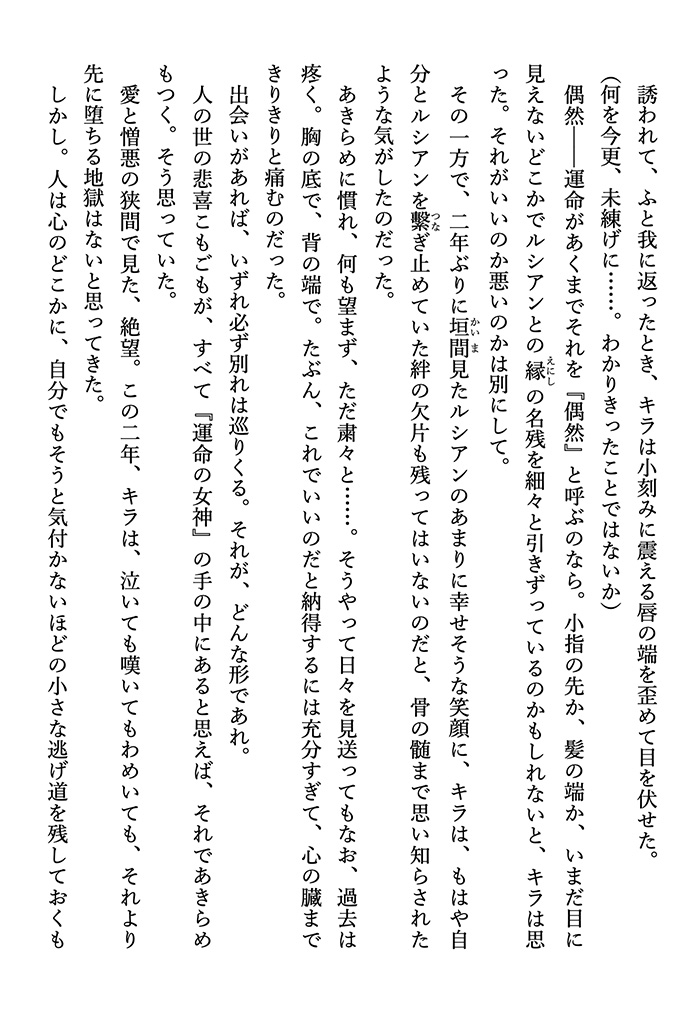 誘われて、ふと我に返ったとき、キラは小刻みに震える唇の端を歪めて目を伏せた。
(何を今更、未練げに……。わかりきったことではないか)
偶然――運命があくまでそれを『偶然』と呼ぶのなら。小指の先か、髪の端か、いまだ目に
見えないどこかでルシアンとの縁の名残を細々と引きずっているのかもしれないと、キラは思
えにし
った。それがいいのか悪いのかは別にして。
その一方で、二年ぶりに垣間見たルシアンのあまりに幸せそうな笑顔に、キラは、もはや自
かいま
分とルシアンを繋ぎ止めていた絆の欠片も残ってはいないのだと、骨の髄まで思い知らされた
つな
ような気がしたのだった。
あきらめに慣れ、何も望まず、ただ粛々と……。そうやって日々を見送ってもなお、過去は
疼く。胸の底で、背の端で。たぶん、これでいいのだと納得するには充分すぎて、心の臓まで
きりきりと痛むのだった。
出会いがあれば、いずれ必ず別れは巡りくる。それが、どんな形であれ。
人の世の悲喜こもごもが、すべて『運命の女神』の手の中にあると思えば、それであきらめ
もつく。そう思っていた。
愛と憎悪の狭間で見た、絶望。この二年、キラは、泣いても嘆いてもわめいても、それより
先に堕ちる地獄はないと思ってきた。
しかし。人は心のどこかに、自分でもそうと気付かないほどの小さな逃げ道を残しておくも